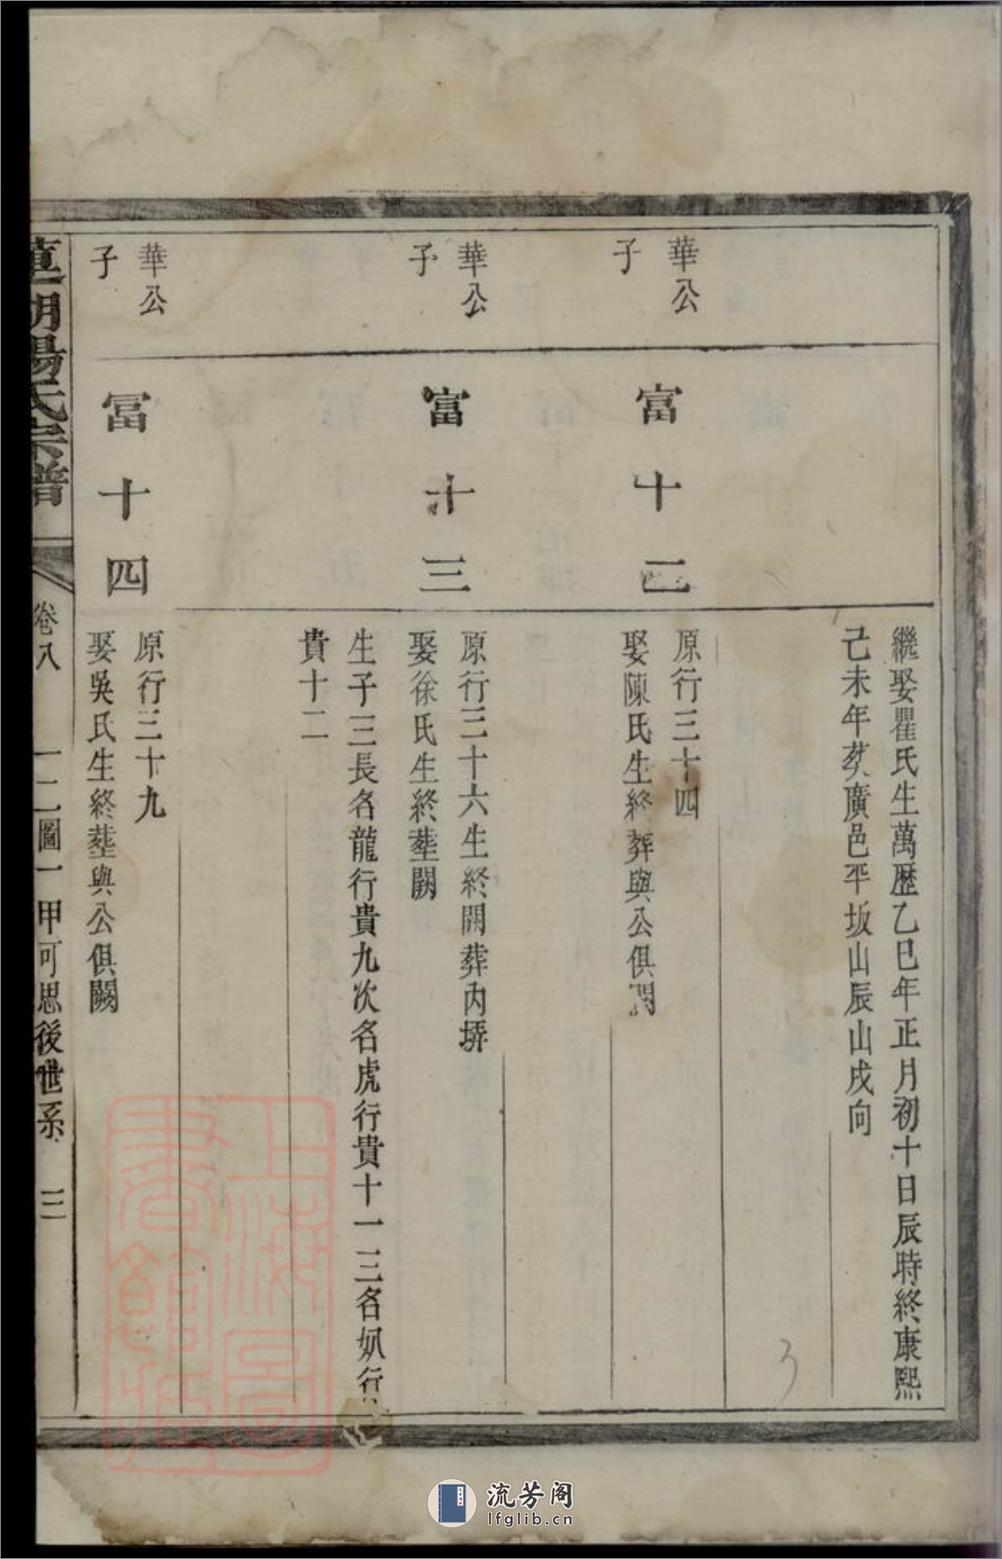 繼娶瞿氏生萬歷乙巳年正月初十日辰時終康熙
己未年塟廣邑平坂山辰山戌向
華公
子
富十二
原行三十四
娶陳氏生終葬與公俱闕
華公
子
富十三
原行三十六生終闕葬內塝
娶徐氏生終塟闕
生子三長名龍行貴九次名虎行貴十一三名虯行
貴十二
華公
子
冨十四
原行三十九
娶吳氏生終塟與公俱闕
湖楊氏宗譜
卷八
一二圖一甲可思後世系
三
3
上海圖書館藏
流芳阁
lfglib.cn